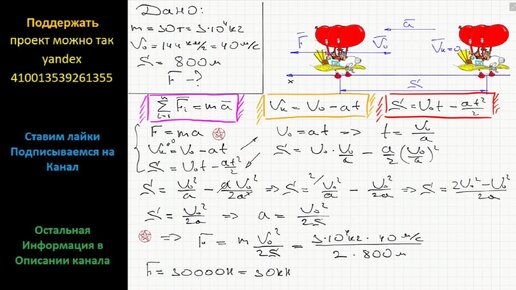 Поддержать
проект можно так
yandex
410013539261355
Ставим лайки
Подписываемся на
Канал
Остальная
Информация в
Описании канала
Дано:
m = 30т = 3·10⁴кг
V₀ = 144 км/ч = 40 м/с
S = 800 м
F - ?
F a V₀ Vₖ=0
x S
ΣFᵢ = ma Vₖ = V₀ - at S = V₀t - at²/2
F = ma V₀ = at => t = V₀/a
Vₖ⁼⁰ = V₀ - at S = V₀ · V₀/a - a/2 (V₀/a)²
S = V₀t - at²/2
S = V₀²/a - aV₀²/2a² => S = ²⁄V₀²/a - V₀²/2a => S = 2V₀² - V₀²/2a
S = V₀²/2a => a = V₀²/2S
=> F = m V₀²/2S = 3·10⁴кг · 40 м/с / 2 · 800 м
F = 30000Н = 30кН